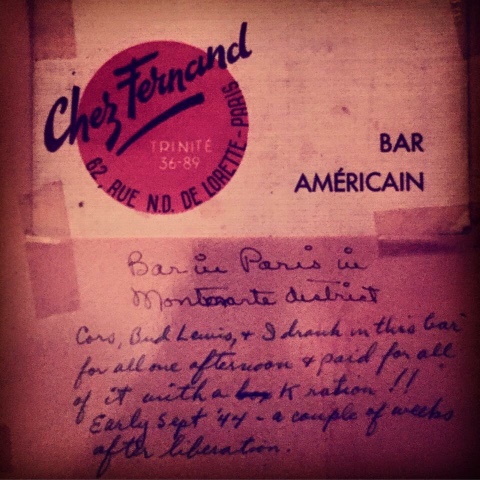 Chez Fernand
TRINITÉ
36-89
62, RUE N.D. DE LORETTE - PARIS
BAR
AMÉRICAIN
Bar in Paris in
district
Bud Lewis, & I drank in this bar
for all one afternoon & paid for all
of it with a K ration !!
Early Sept '44 - a couple of weeks
after liberation.